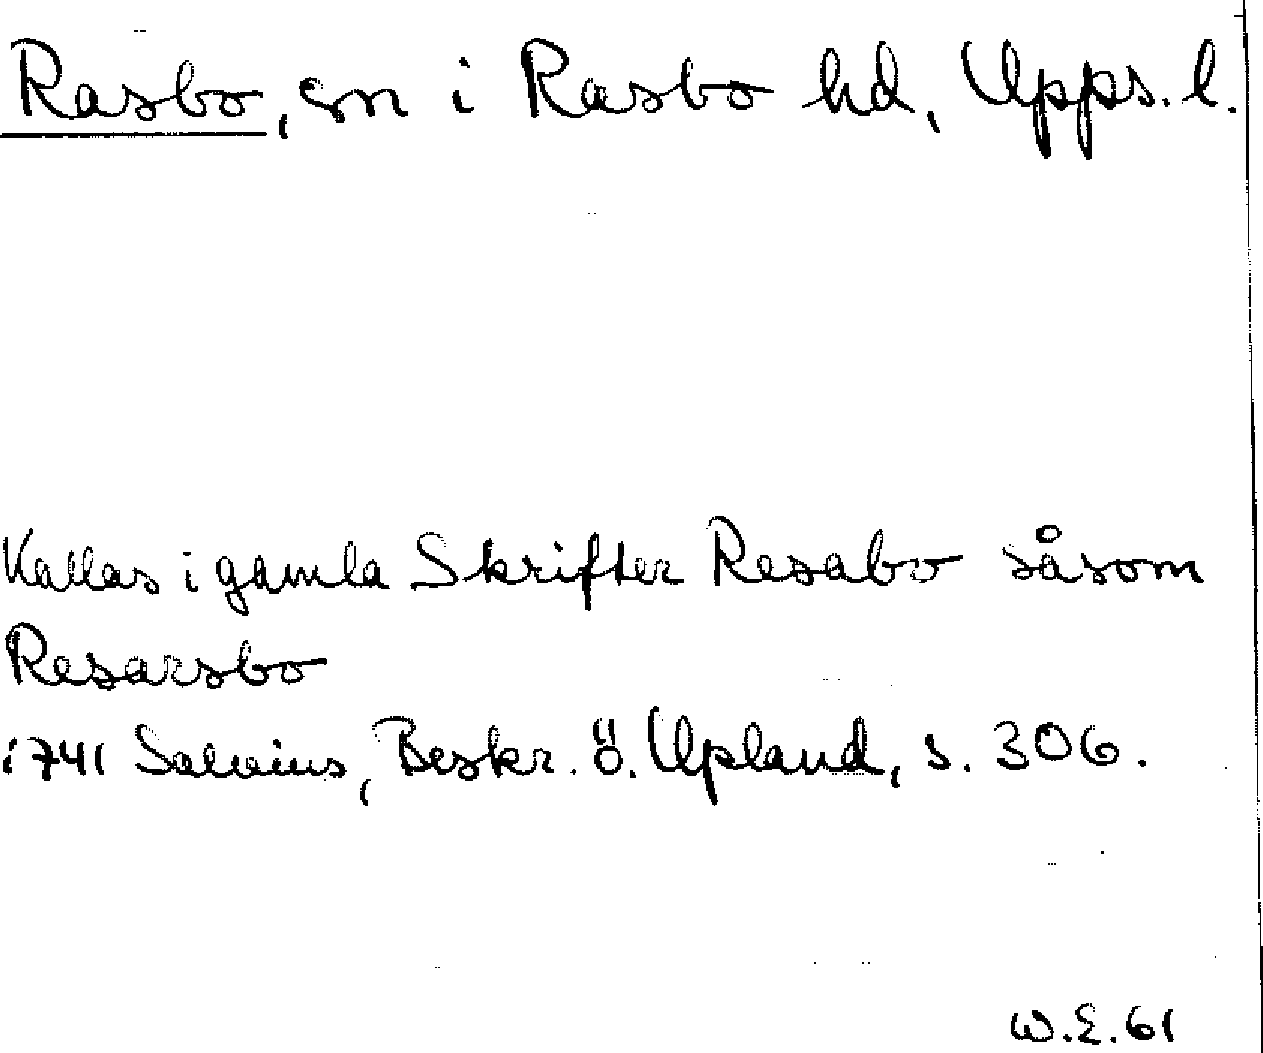 Rasbo, sn i Rasbo hd, Upps. l.
Kallas i gamla Skrifter Resabo såsom
Resarsbo
1741 Salvius, Beskr. ö. Upland, s. 306.
W.E. 61